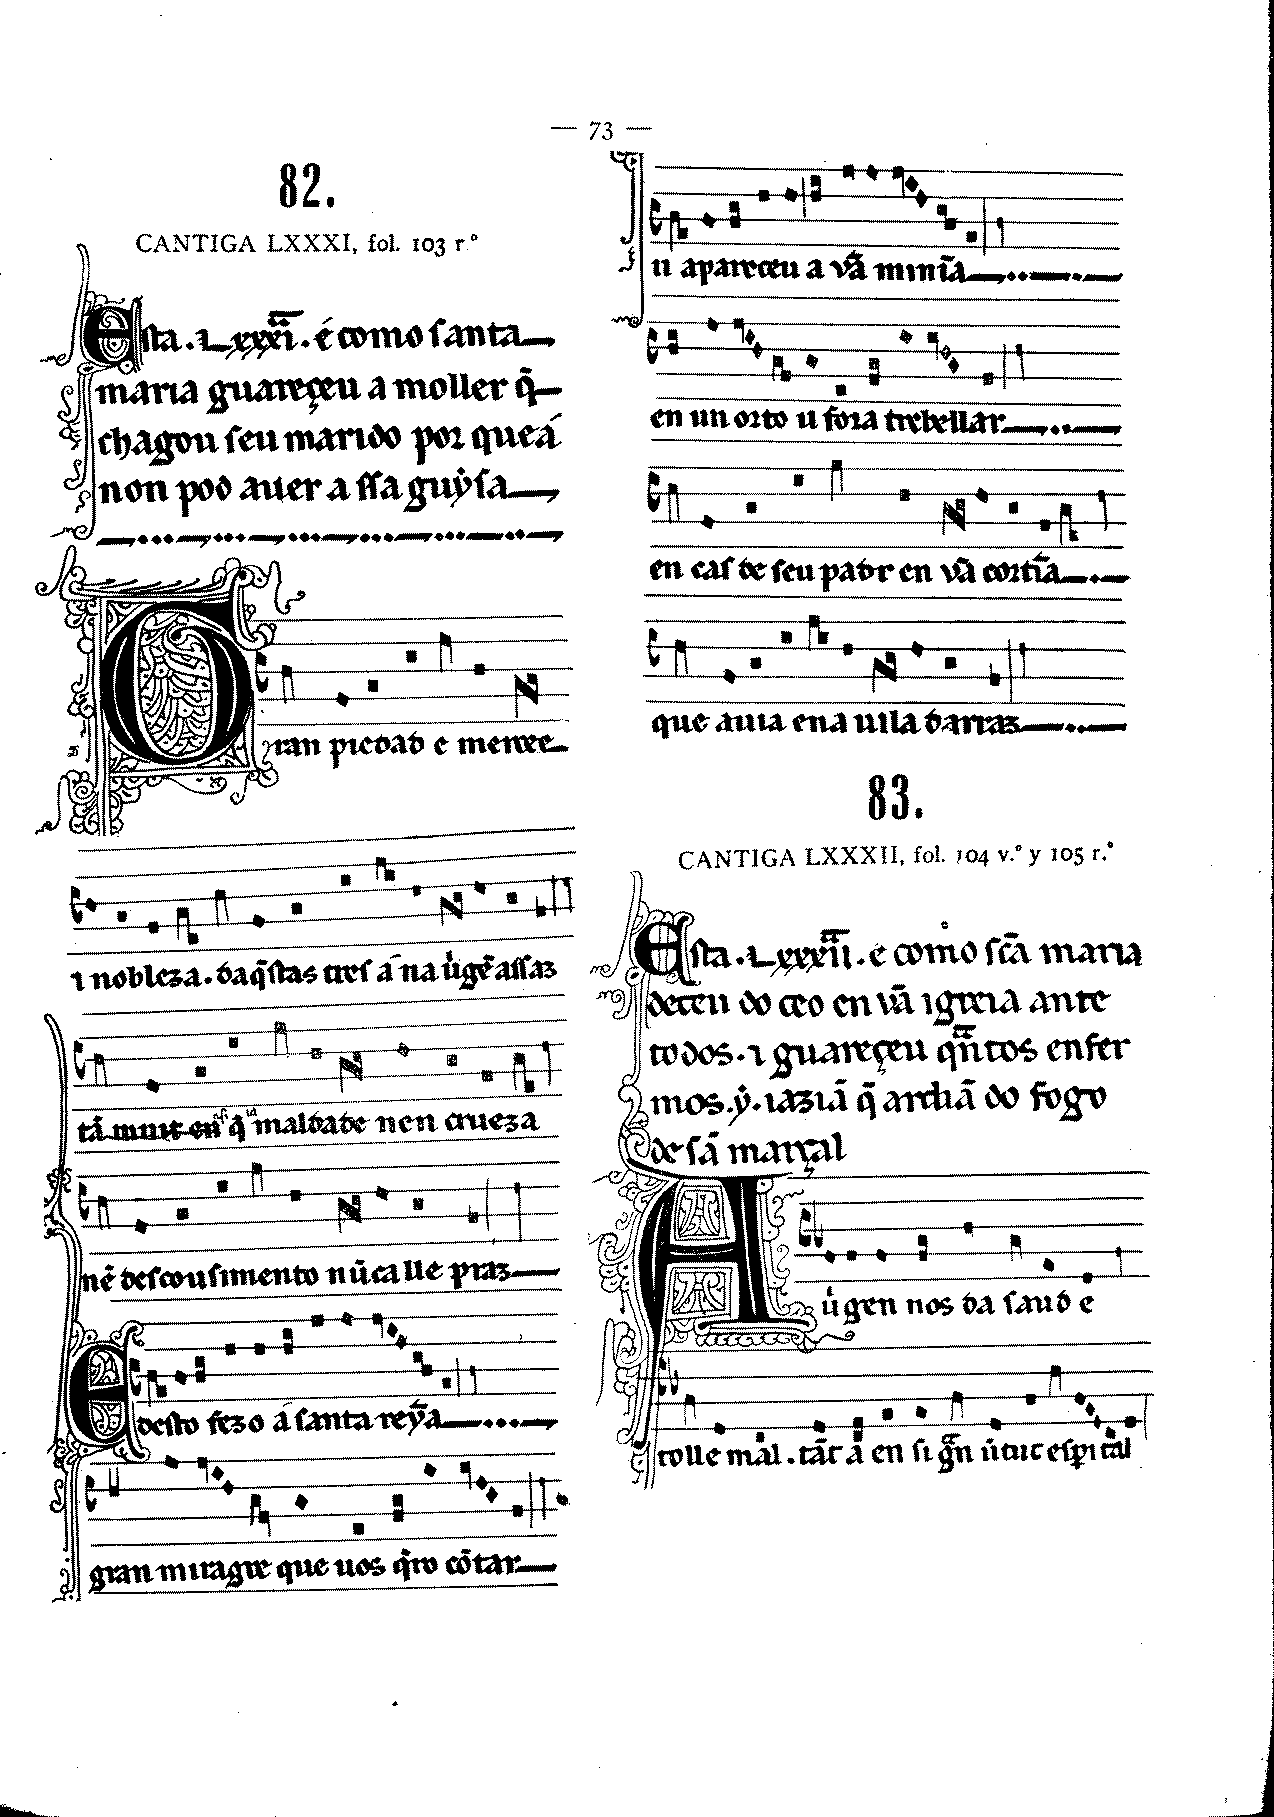 — 73 —
82.
CANTIGA LXXXI, fol. 103 r.º
Esta .Lxxxi. é como santa
maria guareçeu a moller q̃
chagou seu marido por que á
non pod auer a ssa guẏsa
Gran piedad e mercee
ı nobleza. daq̃stas tres á na uirgẽ assaz
tã muit en q̃ maldade nen crueza
nẽ descousimento nũca lle praz
E desto fezo á santa reỹa
gran miragre que uos q̃ro cõtar
u apareceu a vã minĩa
en un orto u fora trebellar
en cas de seu padr en vã cortĩa
que auia ena uila darraz
83.
CANTIGA LXXXII, fol. 104 v.º y 105 r.º
Esta .Lxxxii. é como scã maria
deceu do ceo en vã igreia ante
todos. ı guareçeu q̃ntos enfer
mos .ẏ. iaziã q̃ ardiã do fogo
de sã marçal
A uirgen nos da saud e
tolle mal . tãt á en si grã uirtut esp̃ital